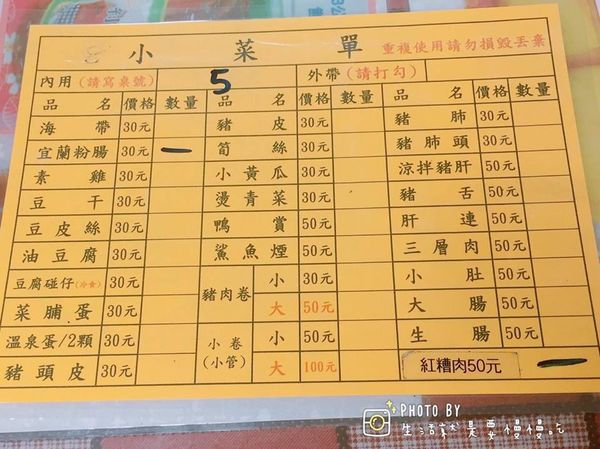 小菜單 重複使用請勿損毀丟棄
內用(請寫桌號) 5 外帶(請打勾)
品名 價格 數量 品名 價格 數量 品名 價格 數量
海帶 30元 豬皮 30元 豬肺 30元
宜蘭粉腸 30元 一 筍絲 30元 豬肺頭 30元
素雞 30元 小黃瓜 30元 涼拌豬肝 30元
豆干 30元 燙青菜 30元 豬舌 50元
豆皮絲 30元 鴨賞 50元 肝連 50元
油豆腐 30元 鯊魚煙 50元 三層肉 50元
豆腐碰仔(冷食) 30元 豬肉卷 小 30元 小肚 50元
菜脯蛋 30元 大 50元 大腸 50元
溫泉蛋/2顆 30元 小卷(小管) 小 50元 生腸 50元
豬頭皮 30元 大 100元 紅糟肉50元 一
PHOTO BY
生活就是要慢慢吃